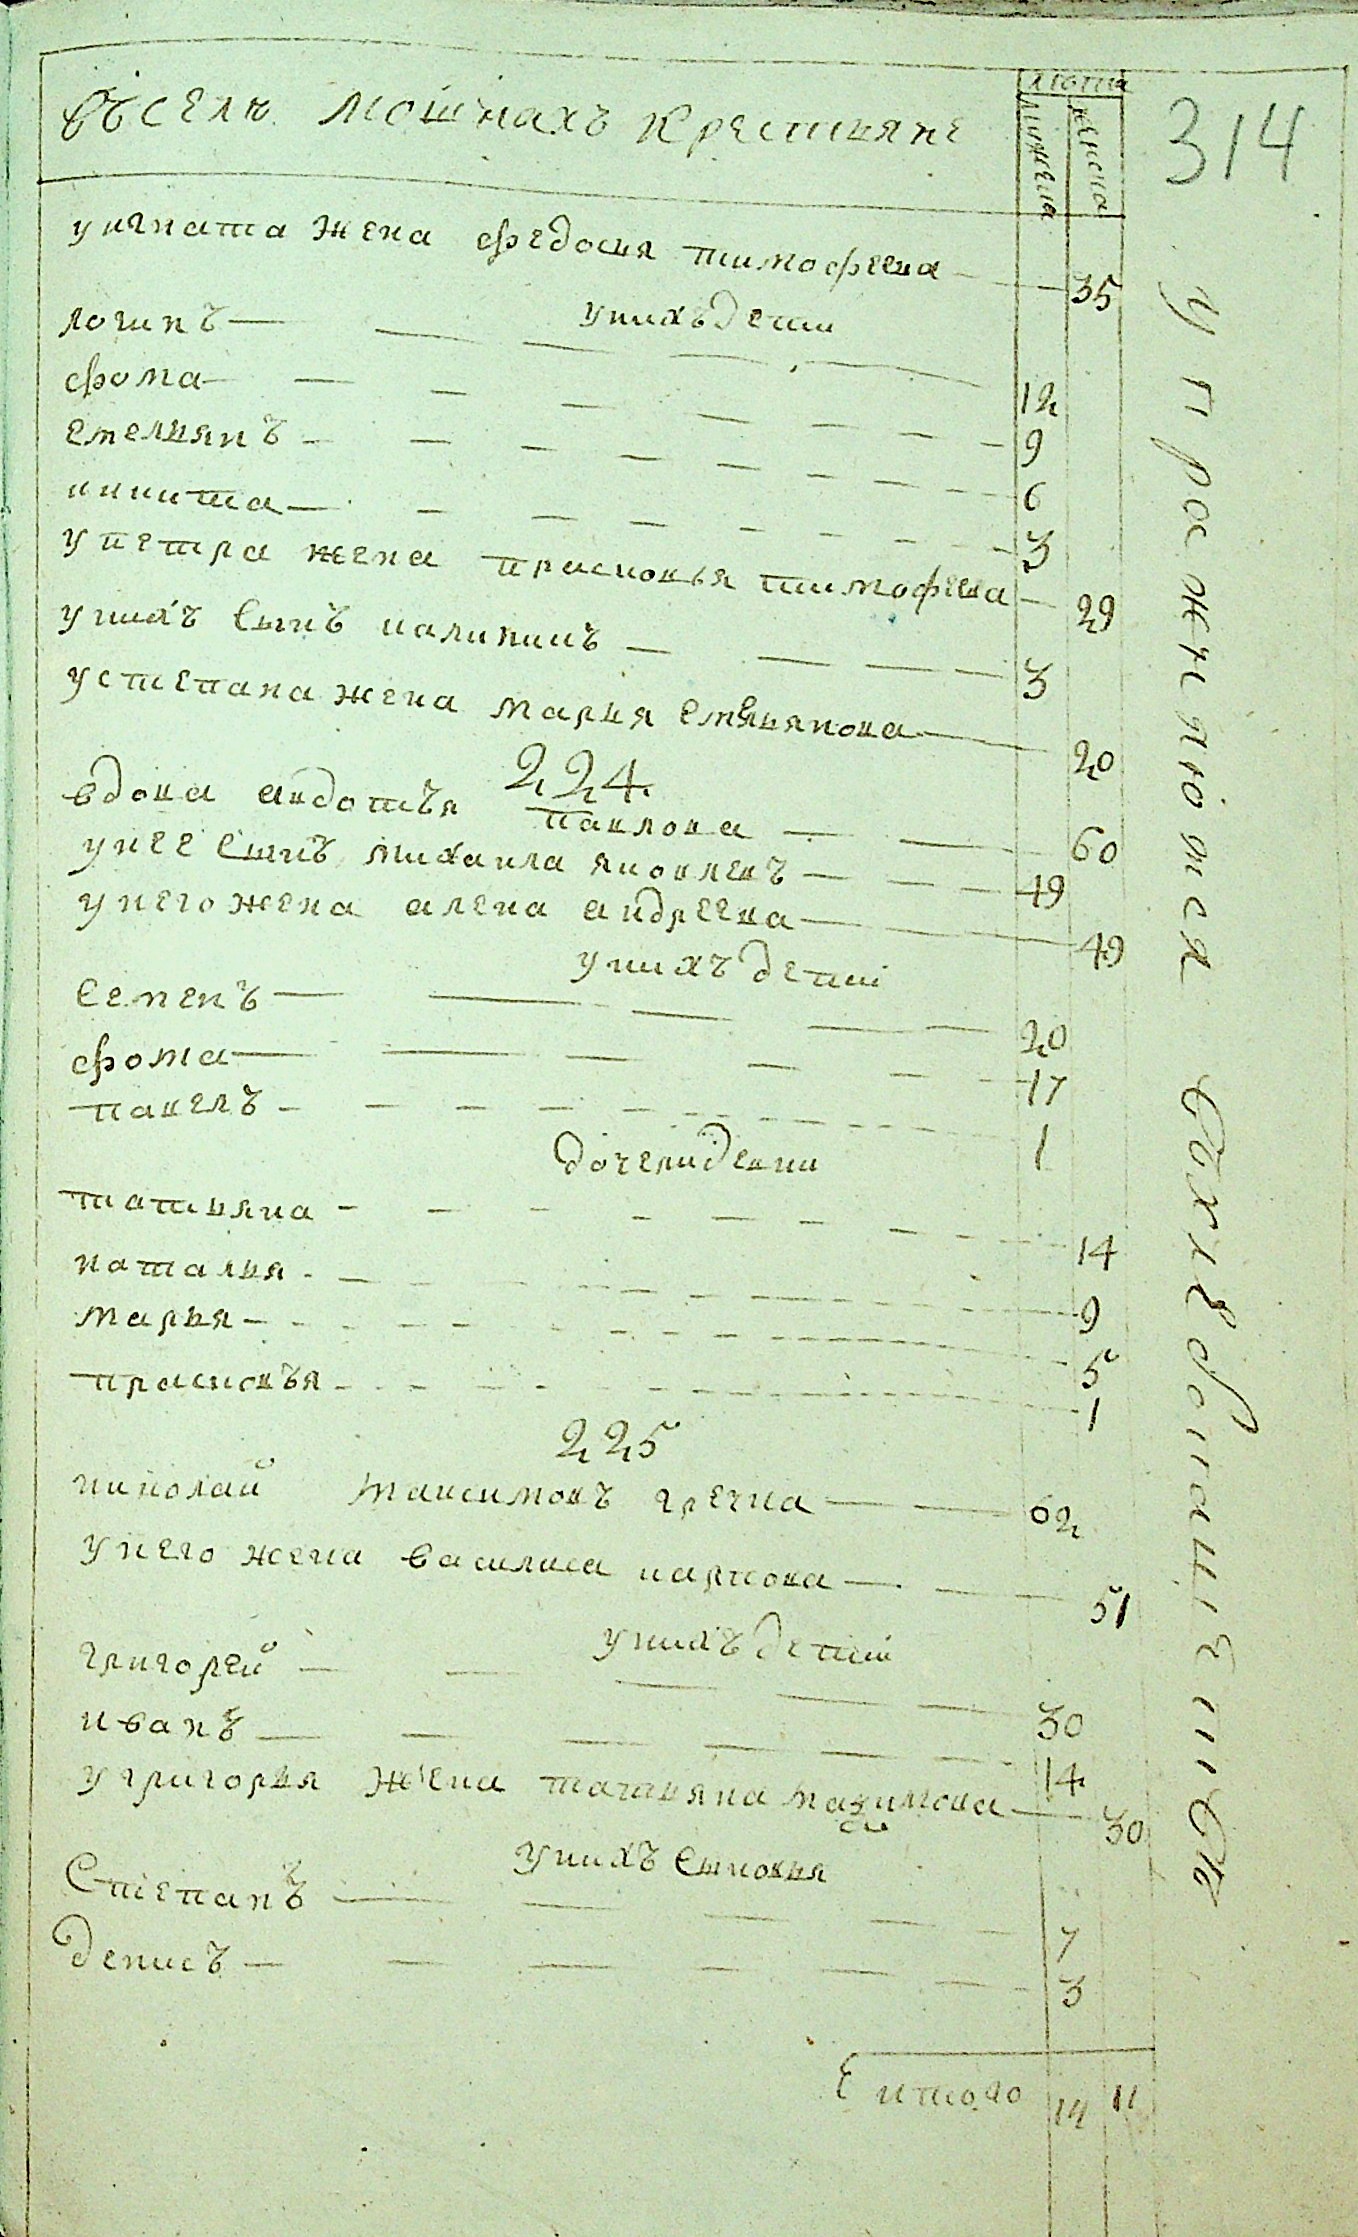 въселѣ мошнахъ крестьяне
лѣта
мужеска
женска
314
уигната жена федосья тимофеева 35
унихъ дети
логинъ 12
фома 9
емельянъ 6
никита 3
упетра жена прасковья тимофеева 29
унихъ сынъ калиникъ 3
устепана жена марья емельянова 20
224
вдова авдотъя павлова 60
унее сынъ михаила яковлевъ 49
унего жена алена андреева 49
унихъ дети
семенъ 20
фома 17
павелъ 1
дочери девки
татьяна 14
наталья 9
марья 5
прасковъя 1
225
николай максимовъ гречка 62
унего жена василиса карпова 51
унихъ дети
григорей 30
иванъ 14
угригорья жена татьяна максимова 30
унихъ сыновья
степанъ 7
денисъ 3
итого 14 11
упражняются
въхлебопашестве